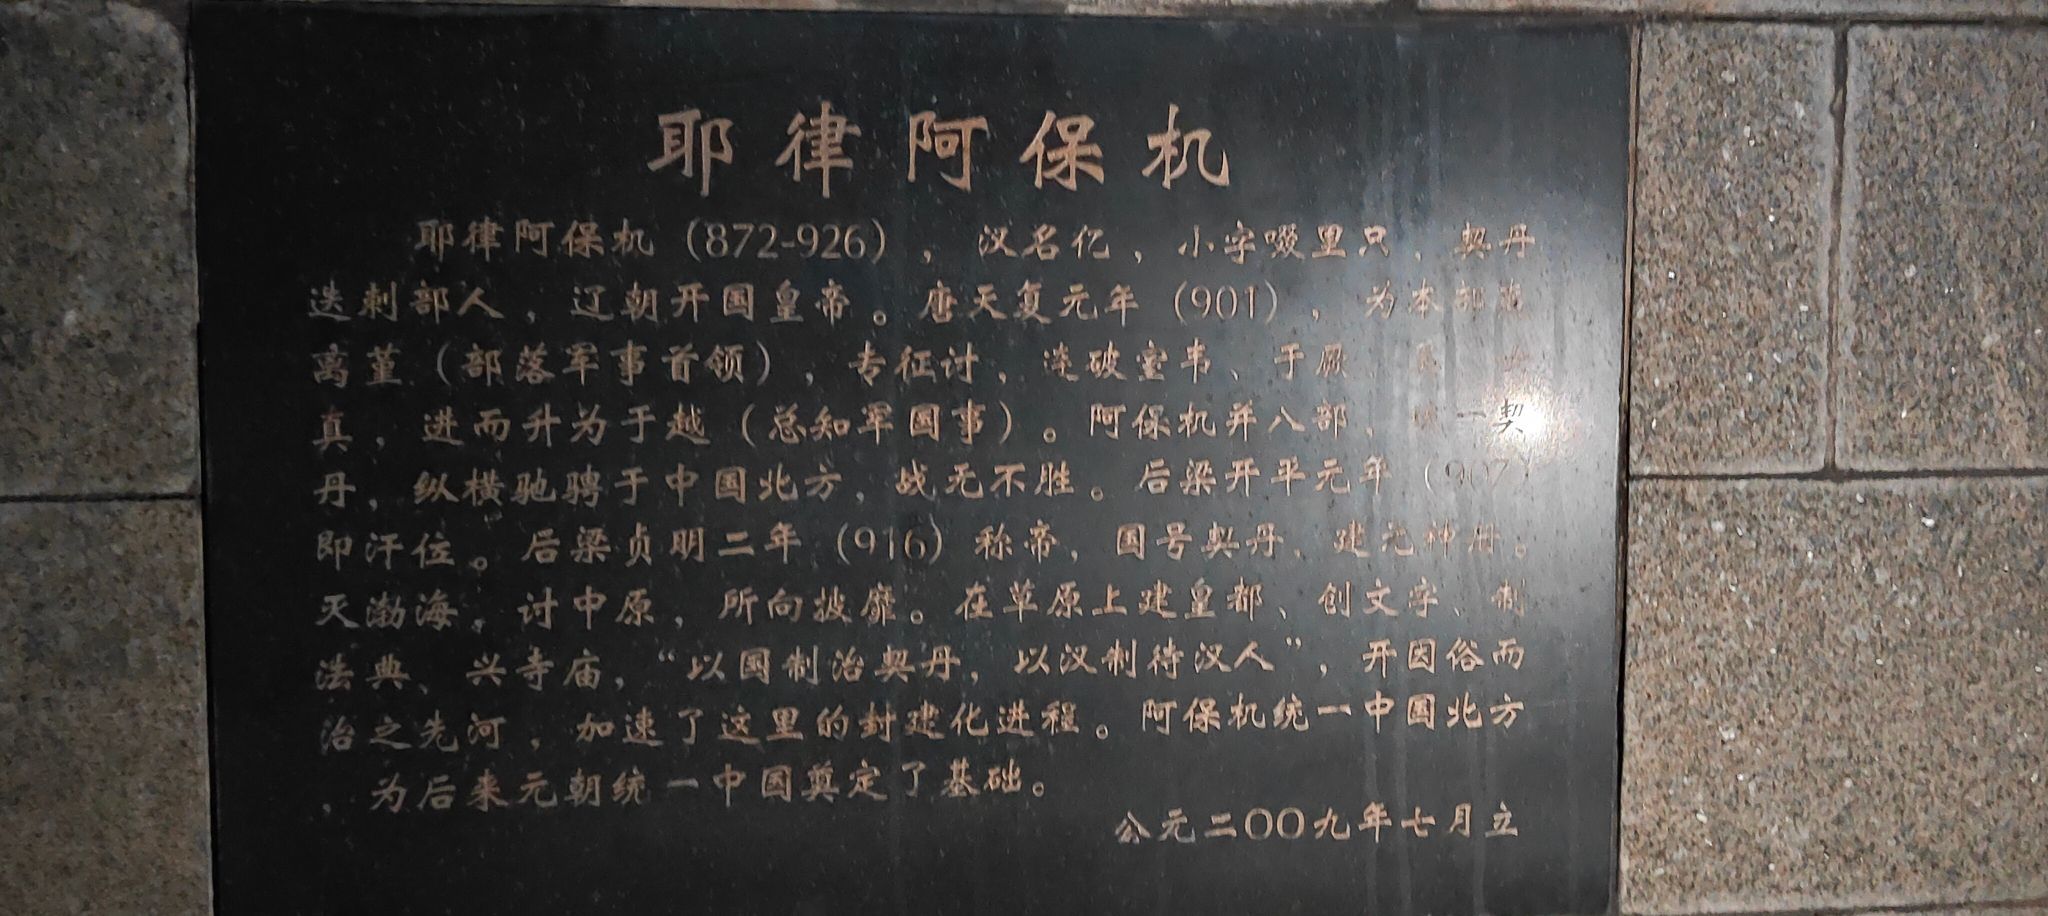 耶律阿保机
耶律阿保机（872-926），汉名亿，小字啜里只，契丹
迭剌部人，辽朝开国皇帝。唐天复元年（901），为本部
离堇（部落军事首领），专征讨，连破室韦、于厥、
真，进而升为于越（总知军国事）。阿保机并八部，一契
丹，纵横驰骋于中国北方，战无不胜。后梁开平元年（907）
即汗位。后梁贞明二年（916）称帝，国号契丹，建元神册。
灭渤海，讨中原，所向披靡。在草原上建皇都、创文字、制
法典、兴寺庙，“以国制治契丹，以汉制待汉人”，开因俗而
治之先河，加速了这里的封建化进程。阿保机统一中国北方
，为后来元朝统一中国奠定了基础。
公元二〇〇九年七月立